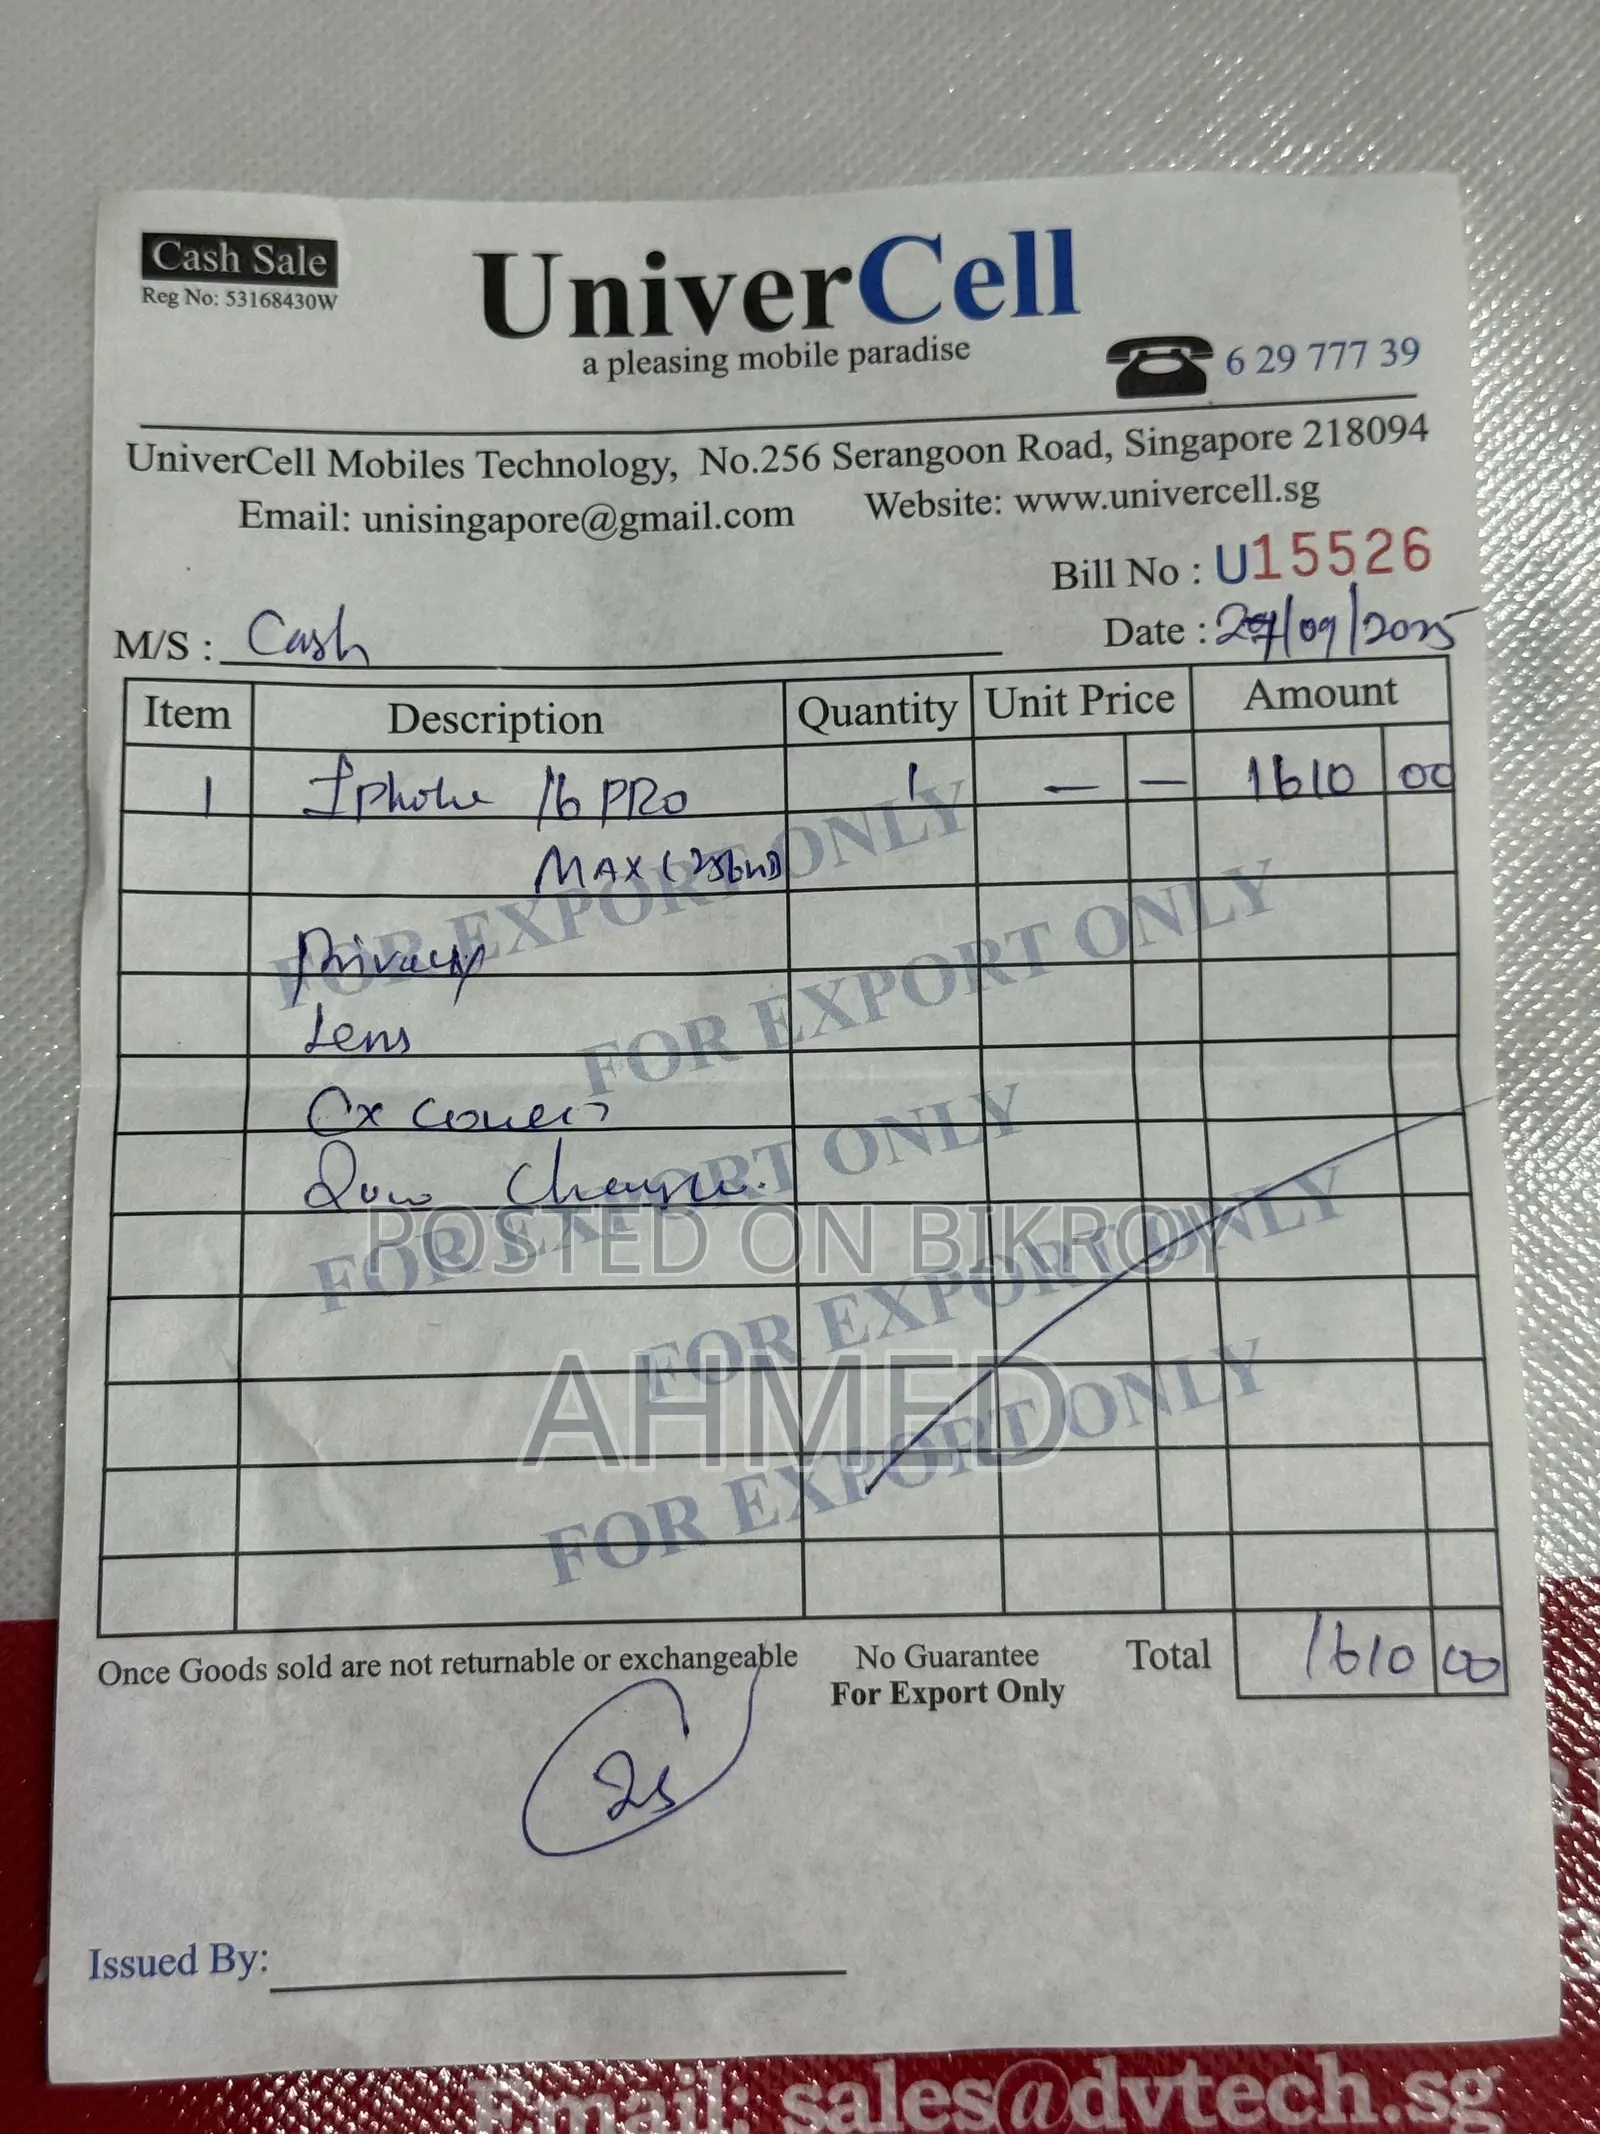 Cash Sale
Reg No: 53168430W
UniverCell
a pleasing mobile paradise
6 29 777 39
UniverCell Mobiles Technology, No.256 Serangoon Road, Singapore 218094
Email: unisingapore@gmail.com Website: www.univercell.sg
Bill No : U15526
M/S : Cash Date : /09/2025
Item Description Quantity Unit Price Amount
1 Iphone 16 PRO 1 — — 1610 00
MAX (256
Privacy
Lens
Cx cover
20w Charger.
FOR EXPORT ONLY
FOR EXPORT ONLY
FOR EXPORT ONLY
FOR EXPORT ONLY
FOR EXPORT ONLY
POSTED ON BIKROY
AHMED
Once Goods sold are not returnable or exchangeable No Guarantee Total 1610 00
For Export Only
Issued By:
Email: sales@dvtech.sg